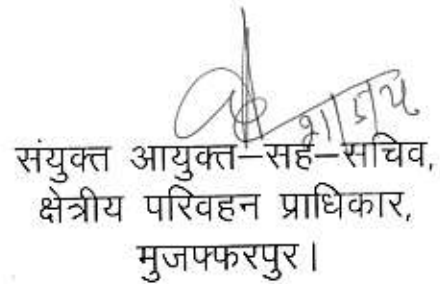 संयुक्त आयुक्त–सह–सचिव,
क्षेत्रीय परिवहन प्राधिकार,
मुजफ्फरपुर।